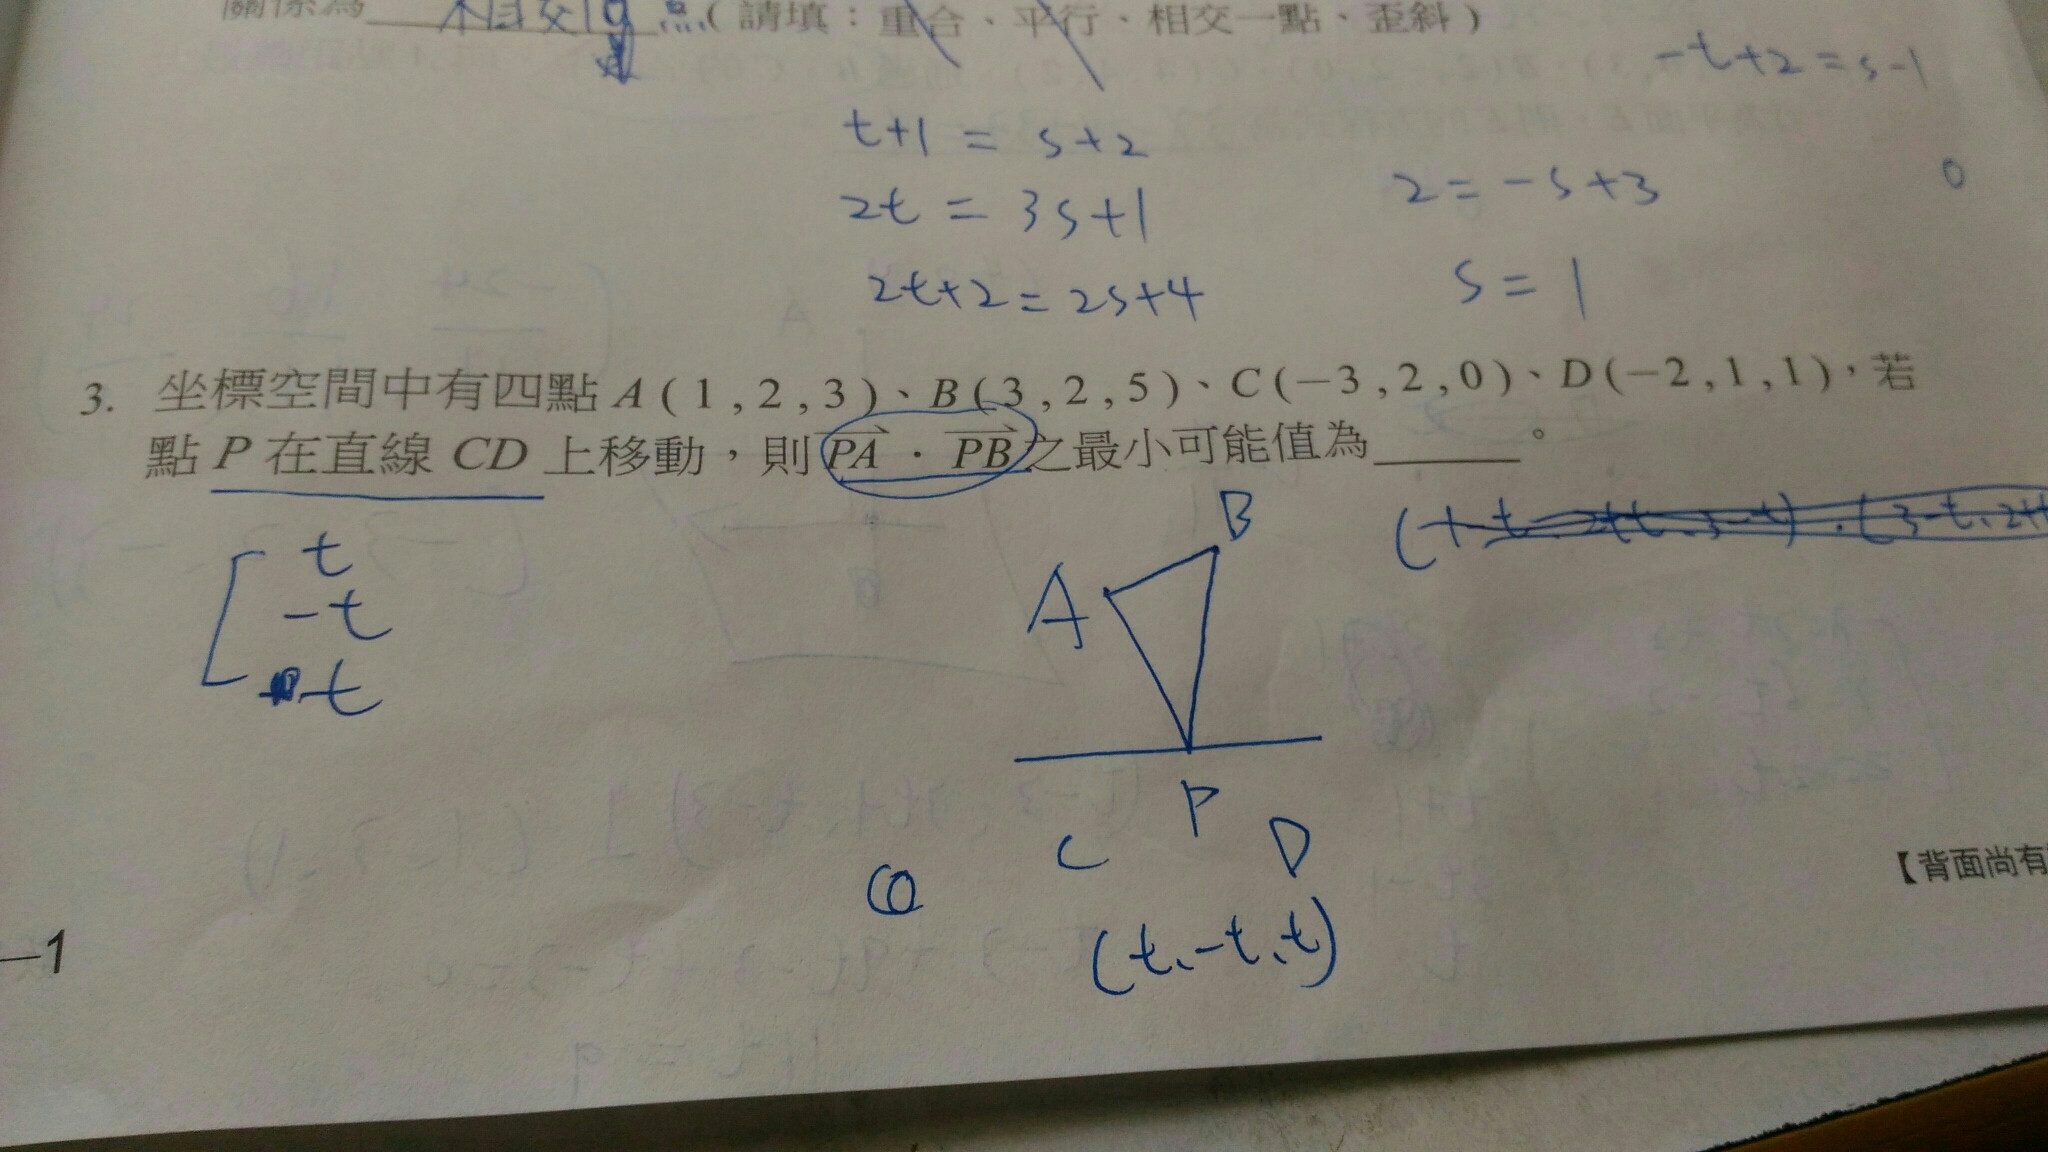 關係為 相交 点(請填：重合、平行、相交一點、歪斜)
-t+2=s-1
t+1 = s+2
2t = 3s+1
2=-s+3
2t+2=2s+4
s=1
3. 坐標空間中有四點 A(1,2,3)、B(3,2,5)、C(-3,2,0)、D(-2,1,1)，若
點 P 在直線 CD 上移動，則 PA · PB 之最小可能值為______。
t
-t
t
B
A
P
C D
(t、-t、t)
【背面尚有
—1